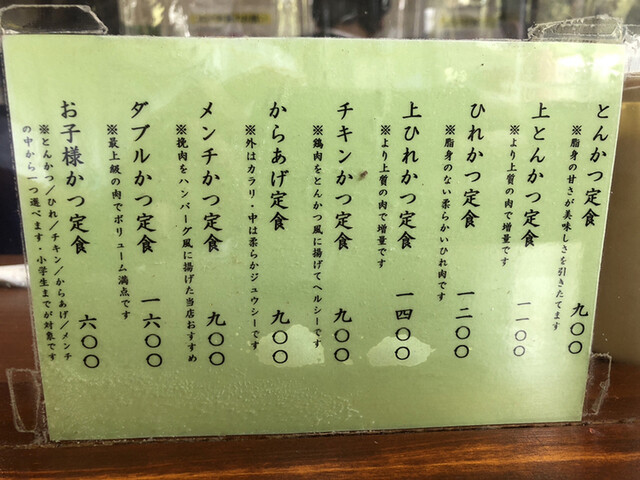 とんかつ定食 九〇〇
※脂身の甘さが美味しさを引きたてます
上とんかつ定食 一一〇〇
※より上質の肉で増量です
ひれかつ定食 一二〇〇
※脂身のない柔らかいひれ肉です
上ひれかつ定食 一四〇〇
※より上質の肉で増量です
チキンかつ定食 九〇〇
※鶏肉をとんかつ風に揚げてヘルシーです
からあげ定食 九〇〇
※外はカラリ・中は柔らかジュウシーです
メンチかつ定食 九〇〇
※挽肉をハンバーグ風に揚げた当店おすすめ
ダブルかつ定食 一六〇〇
※最上級の肉でボリューム満点です
お子様かつ定食 六〇〇
※とんかつ/ひれ/チキン/からあげ/メンチ
の中から一つ選べます・小学生までが対象です